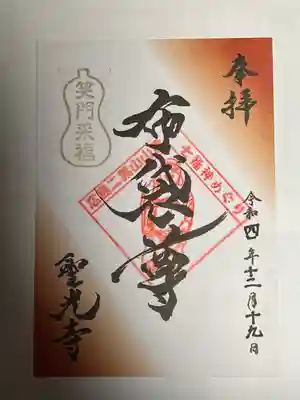 奉拝
令和四年十二月十九日
布袋尊
七福神めぐり
広島二葉山山麓
笑門来福
聖光寺